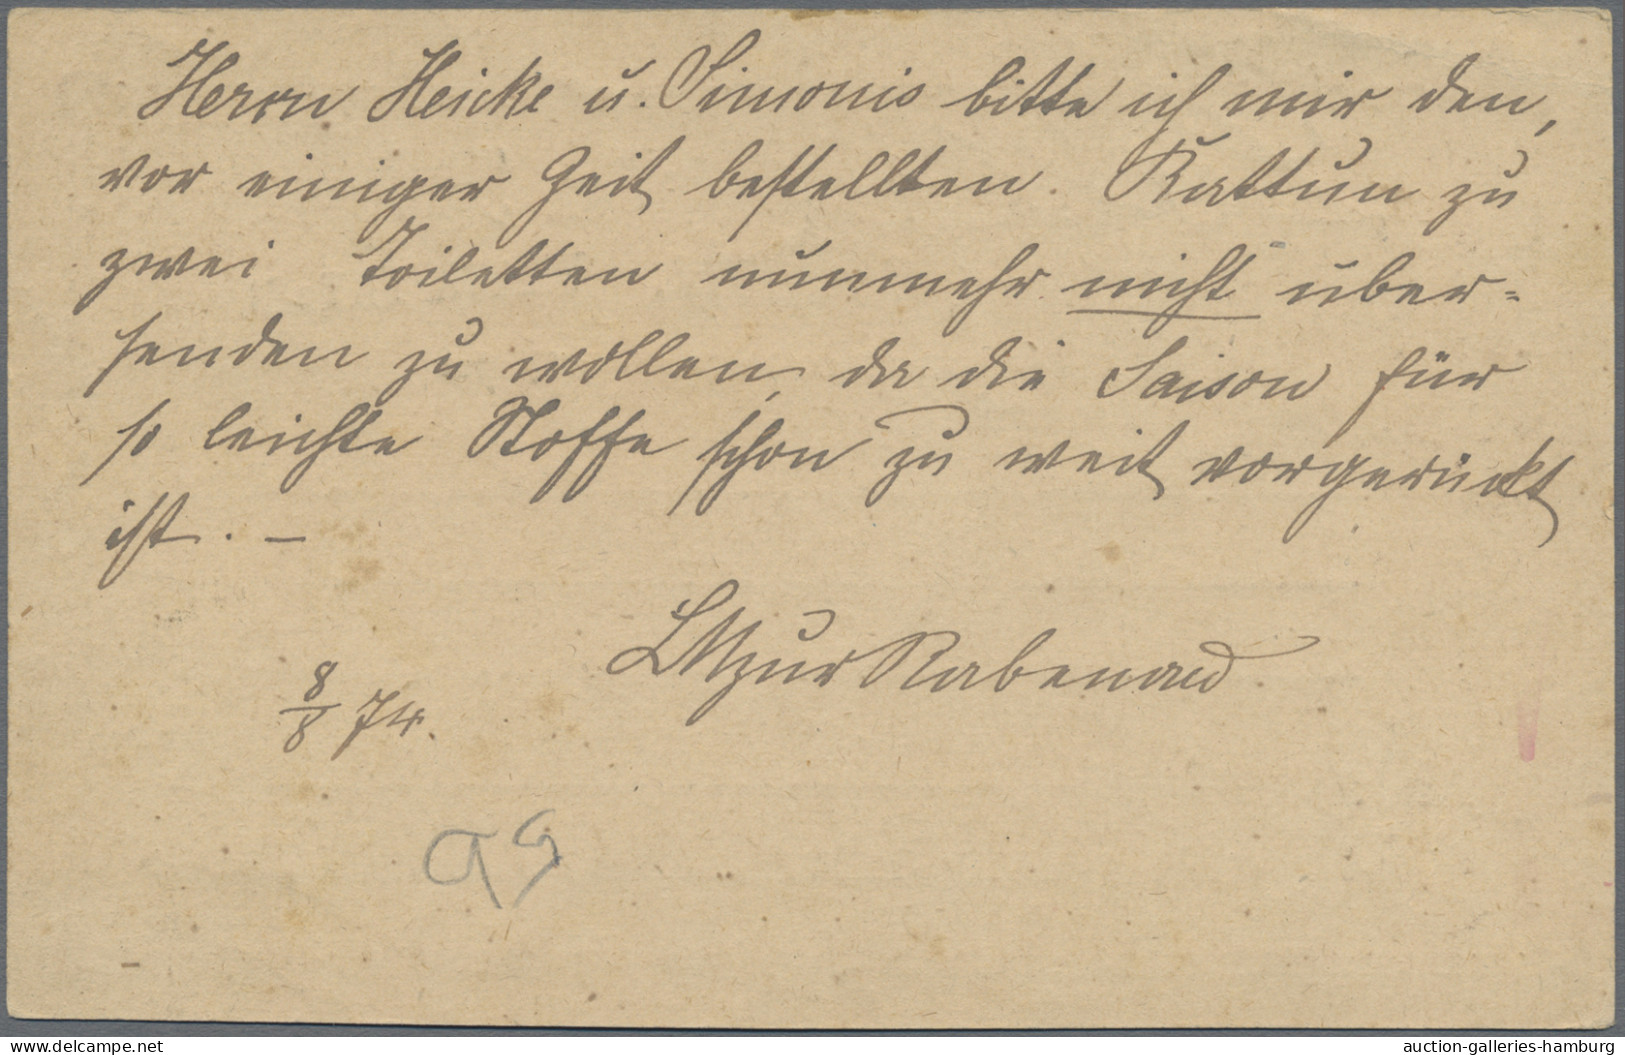 Herrn Heicke u. Simonis bitte ich mir den,
vor einiger Zeit bestellten Kattun zu
zwei Toiletten nunmehr nicht über-
senden zu wollen, da die Saison für
so leichte Stoffe schon zu weit vorgerückt
ist. –
zur Rabenau
8/8 74.
delcampe.net
auction-galleries-hamburg